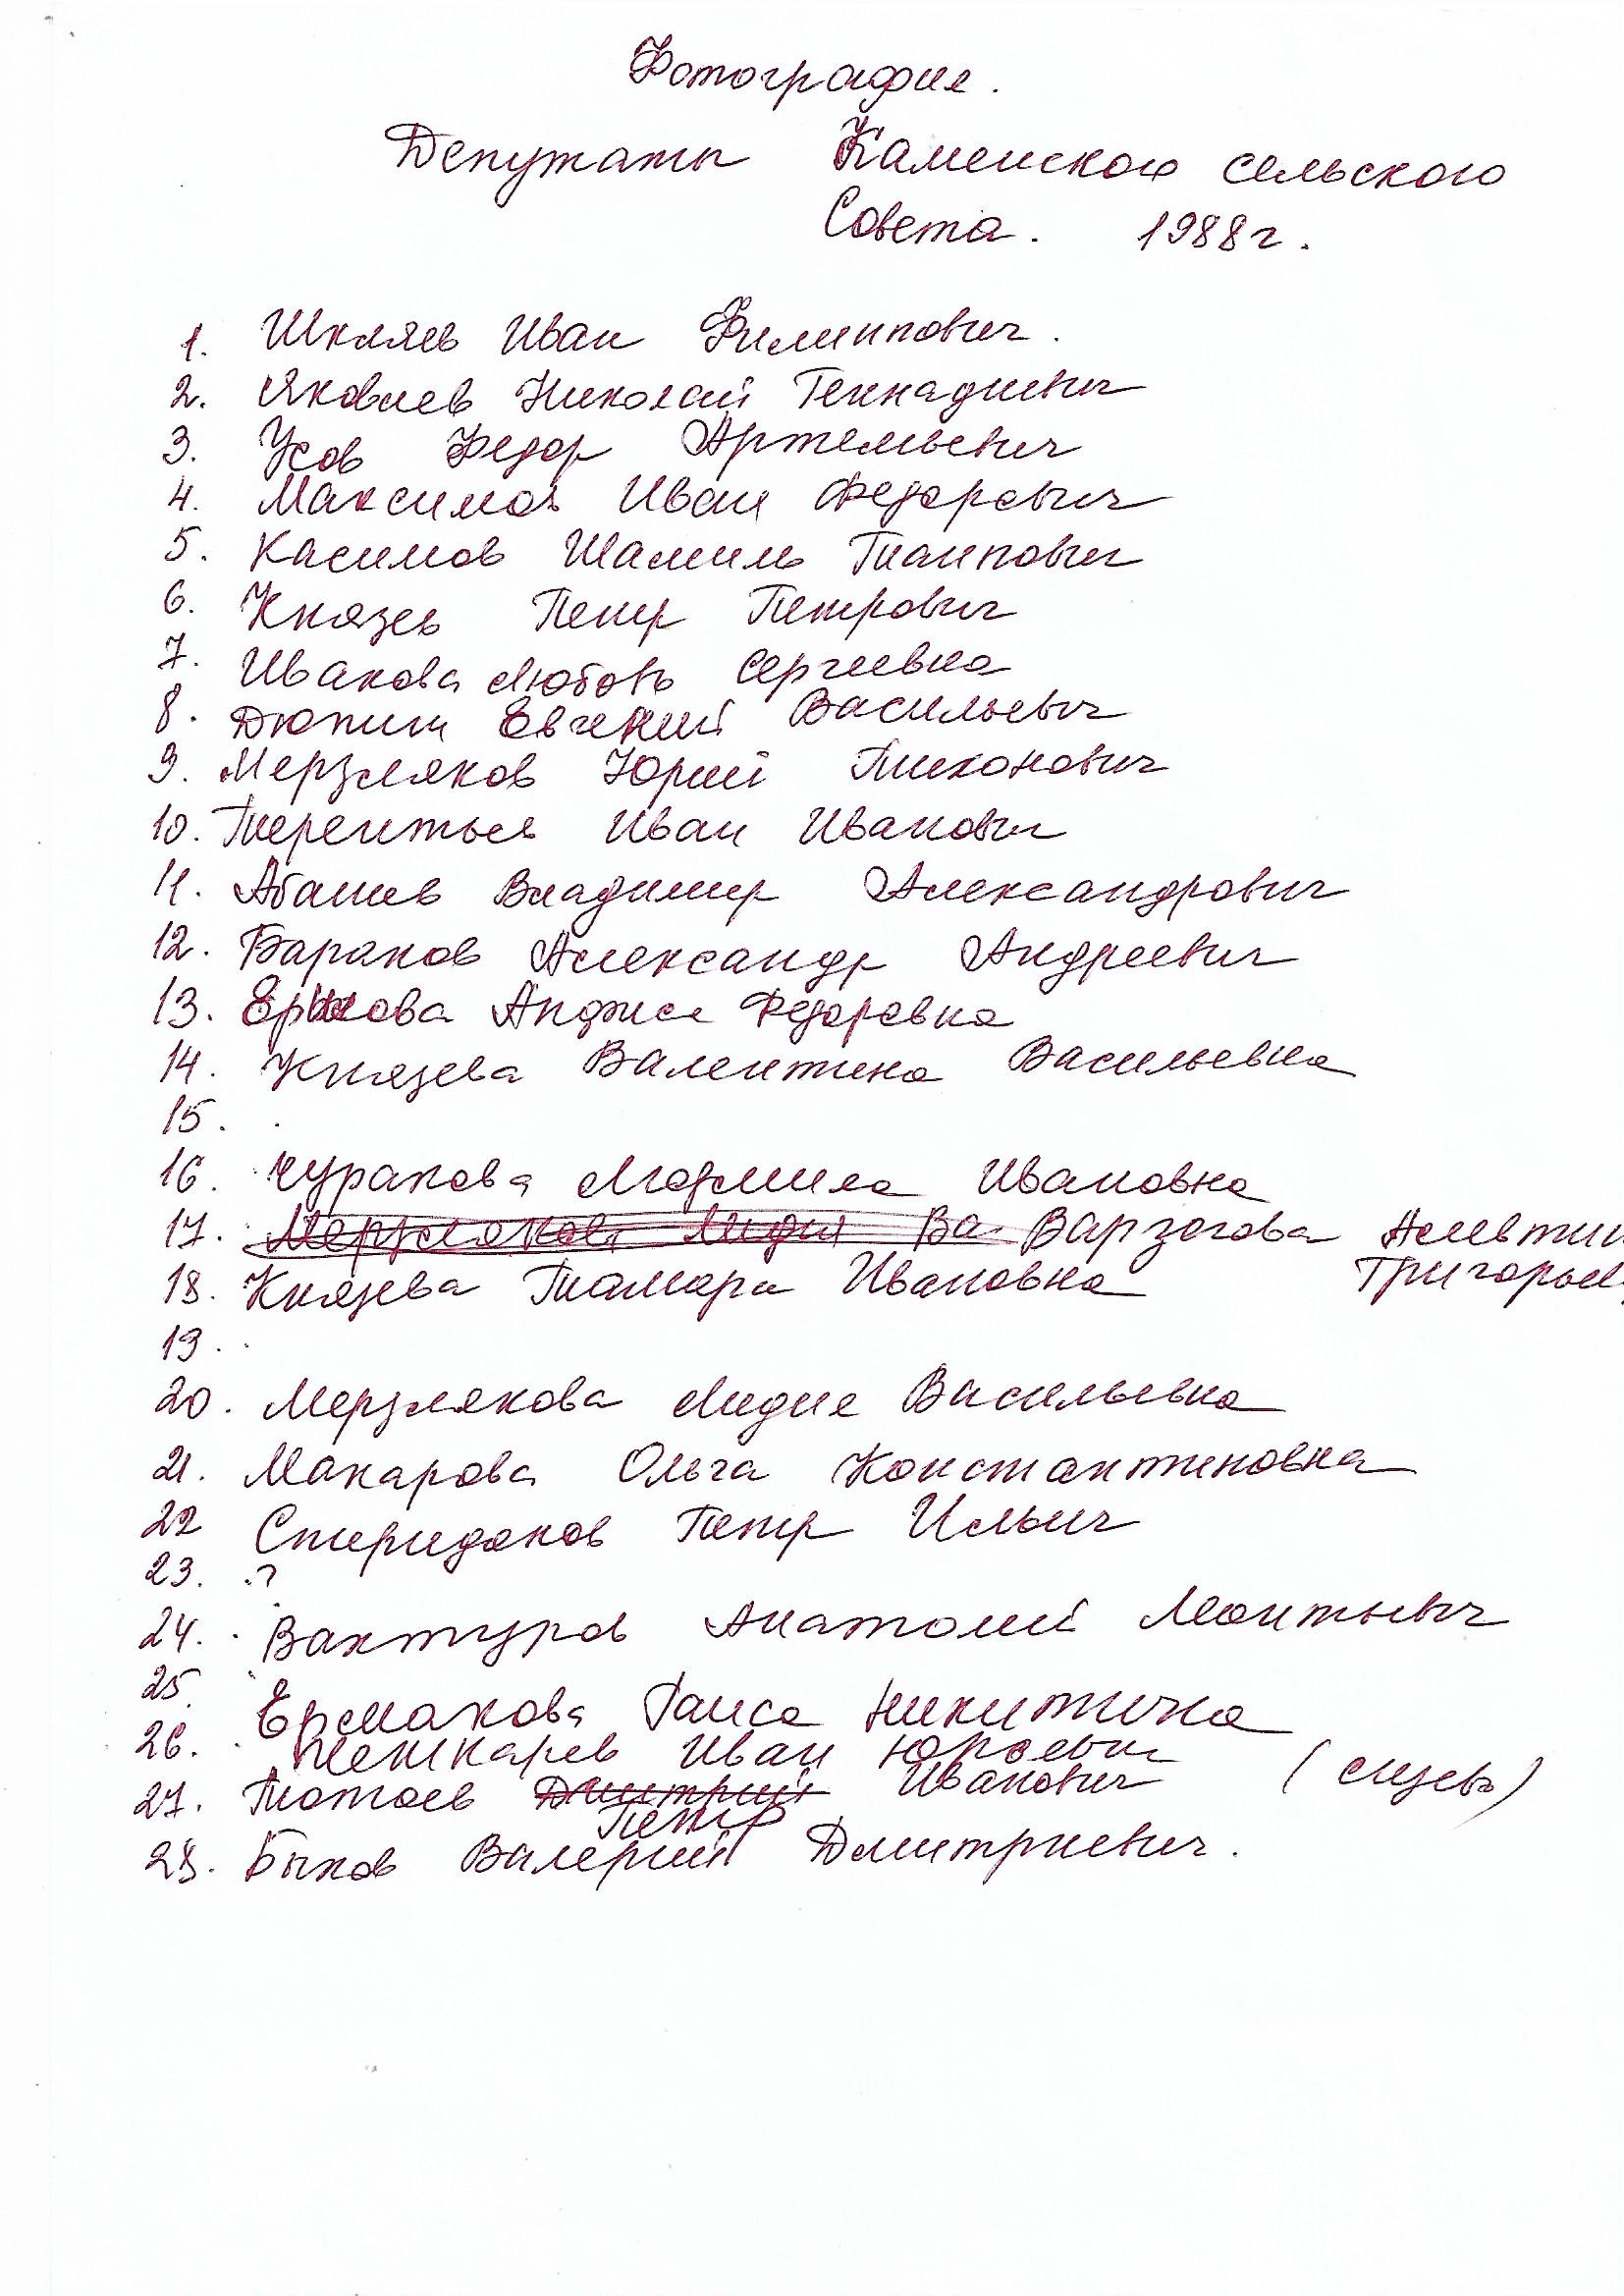 Фотография.
Депутаты Каменского сельского
Совета. 1988 г.
1. Шкляев Иван Филиппович.
2. Яковлев Николай Геннадиевич
3. Усов Федор Артемьевич
4. Максимов Иван Федорович
5. Касимов Шамиль Таипович
6. Князев Петр Петрович
7. Иванова Любовь Сергеевна
8. Дюпин Евгений Васильевич
9. Мерзляков Юрий Тихонович
10. Терентьев Иван Иванович
11. Абашев Владимир Александрович
12. Баранов Александр Андреевич
13. Ершова Анфиса Федоровна
14. Князева Валентина Васильевна
15.
16. Чуракова Людмила Ивановна
17. Мерзлякова Лидия Ва Варзегова Алевтин
18. Князева Тамара Ивановна Григорьев
19.
20. Мерзлякова Лидия Васильевна
21. Макарова Ольга Константиновна
22 Спиридонов Петр Ильич
23. ?
24. Вахтуров Анатолий Леонтьевич
25. Ермакова Раиса Никитична
26. Пешкарев Иван Юрьевич
27. Тотоев Дмитрий Иванович (слизевь)
Петр
28. Быков Валерий Дмитриевич.